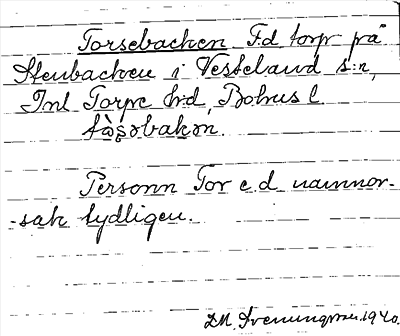 Torsebacken F.d torp på
Stenbacken i Vesteland s:n,
Inl Torpe hd, Bohus l
tòsəbakən.
Personn Tor e.d namnor-
-sak tydligen.
1940